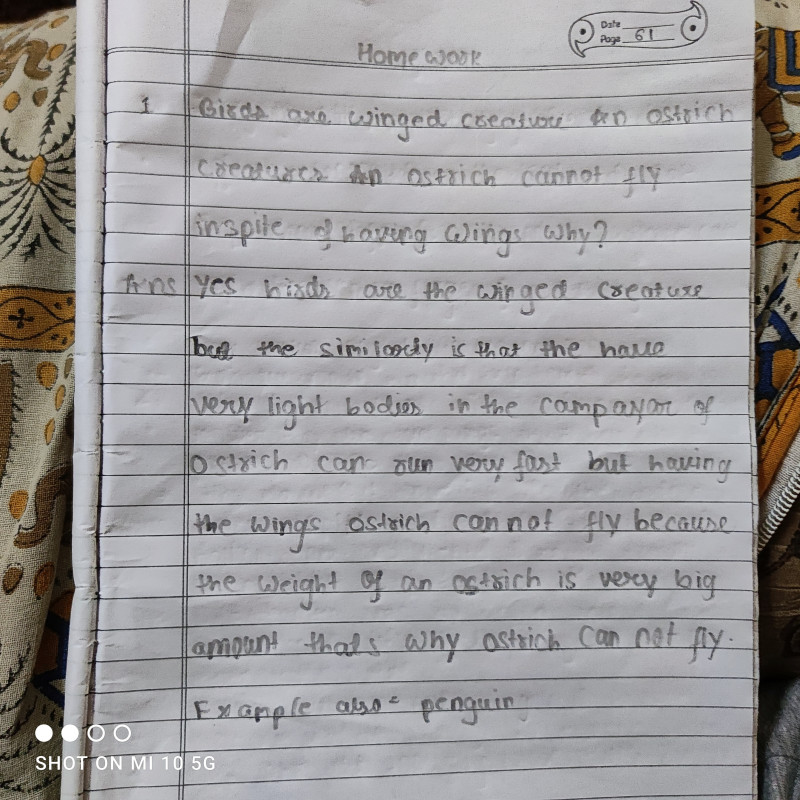 Date
Page 61
Home wook
1 Birds are winged creature An ostrich
creatures An ostrich cannot fly
inspite of having wings why?
Ans yes birds are the winged creature
but the similoody is that the have
very light bodies in the campayor of
ostrich can run very fast but having
the wings ostrich can not fly because
the weight of an ostrich is very big
amount thats why ostrich can not fly.
Example also = penguin
SHOT ON MI 10 5G